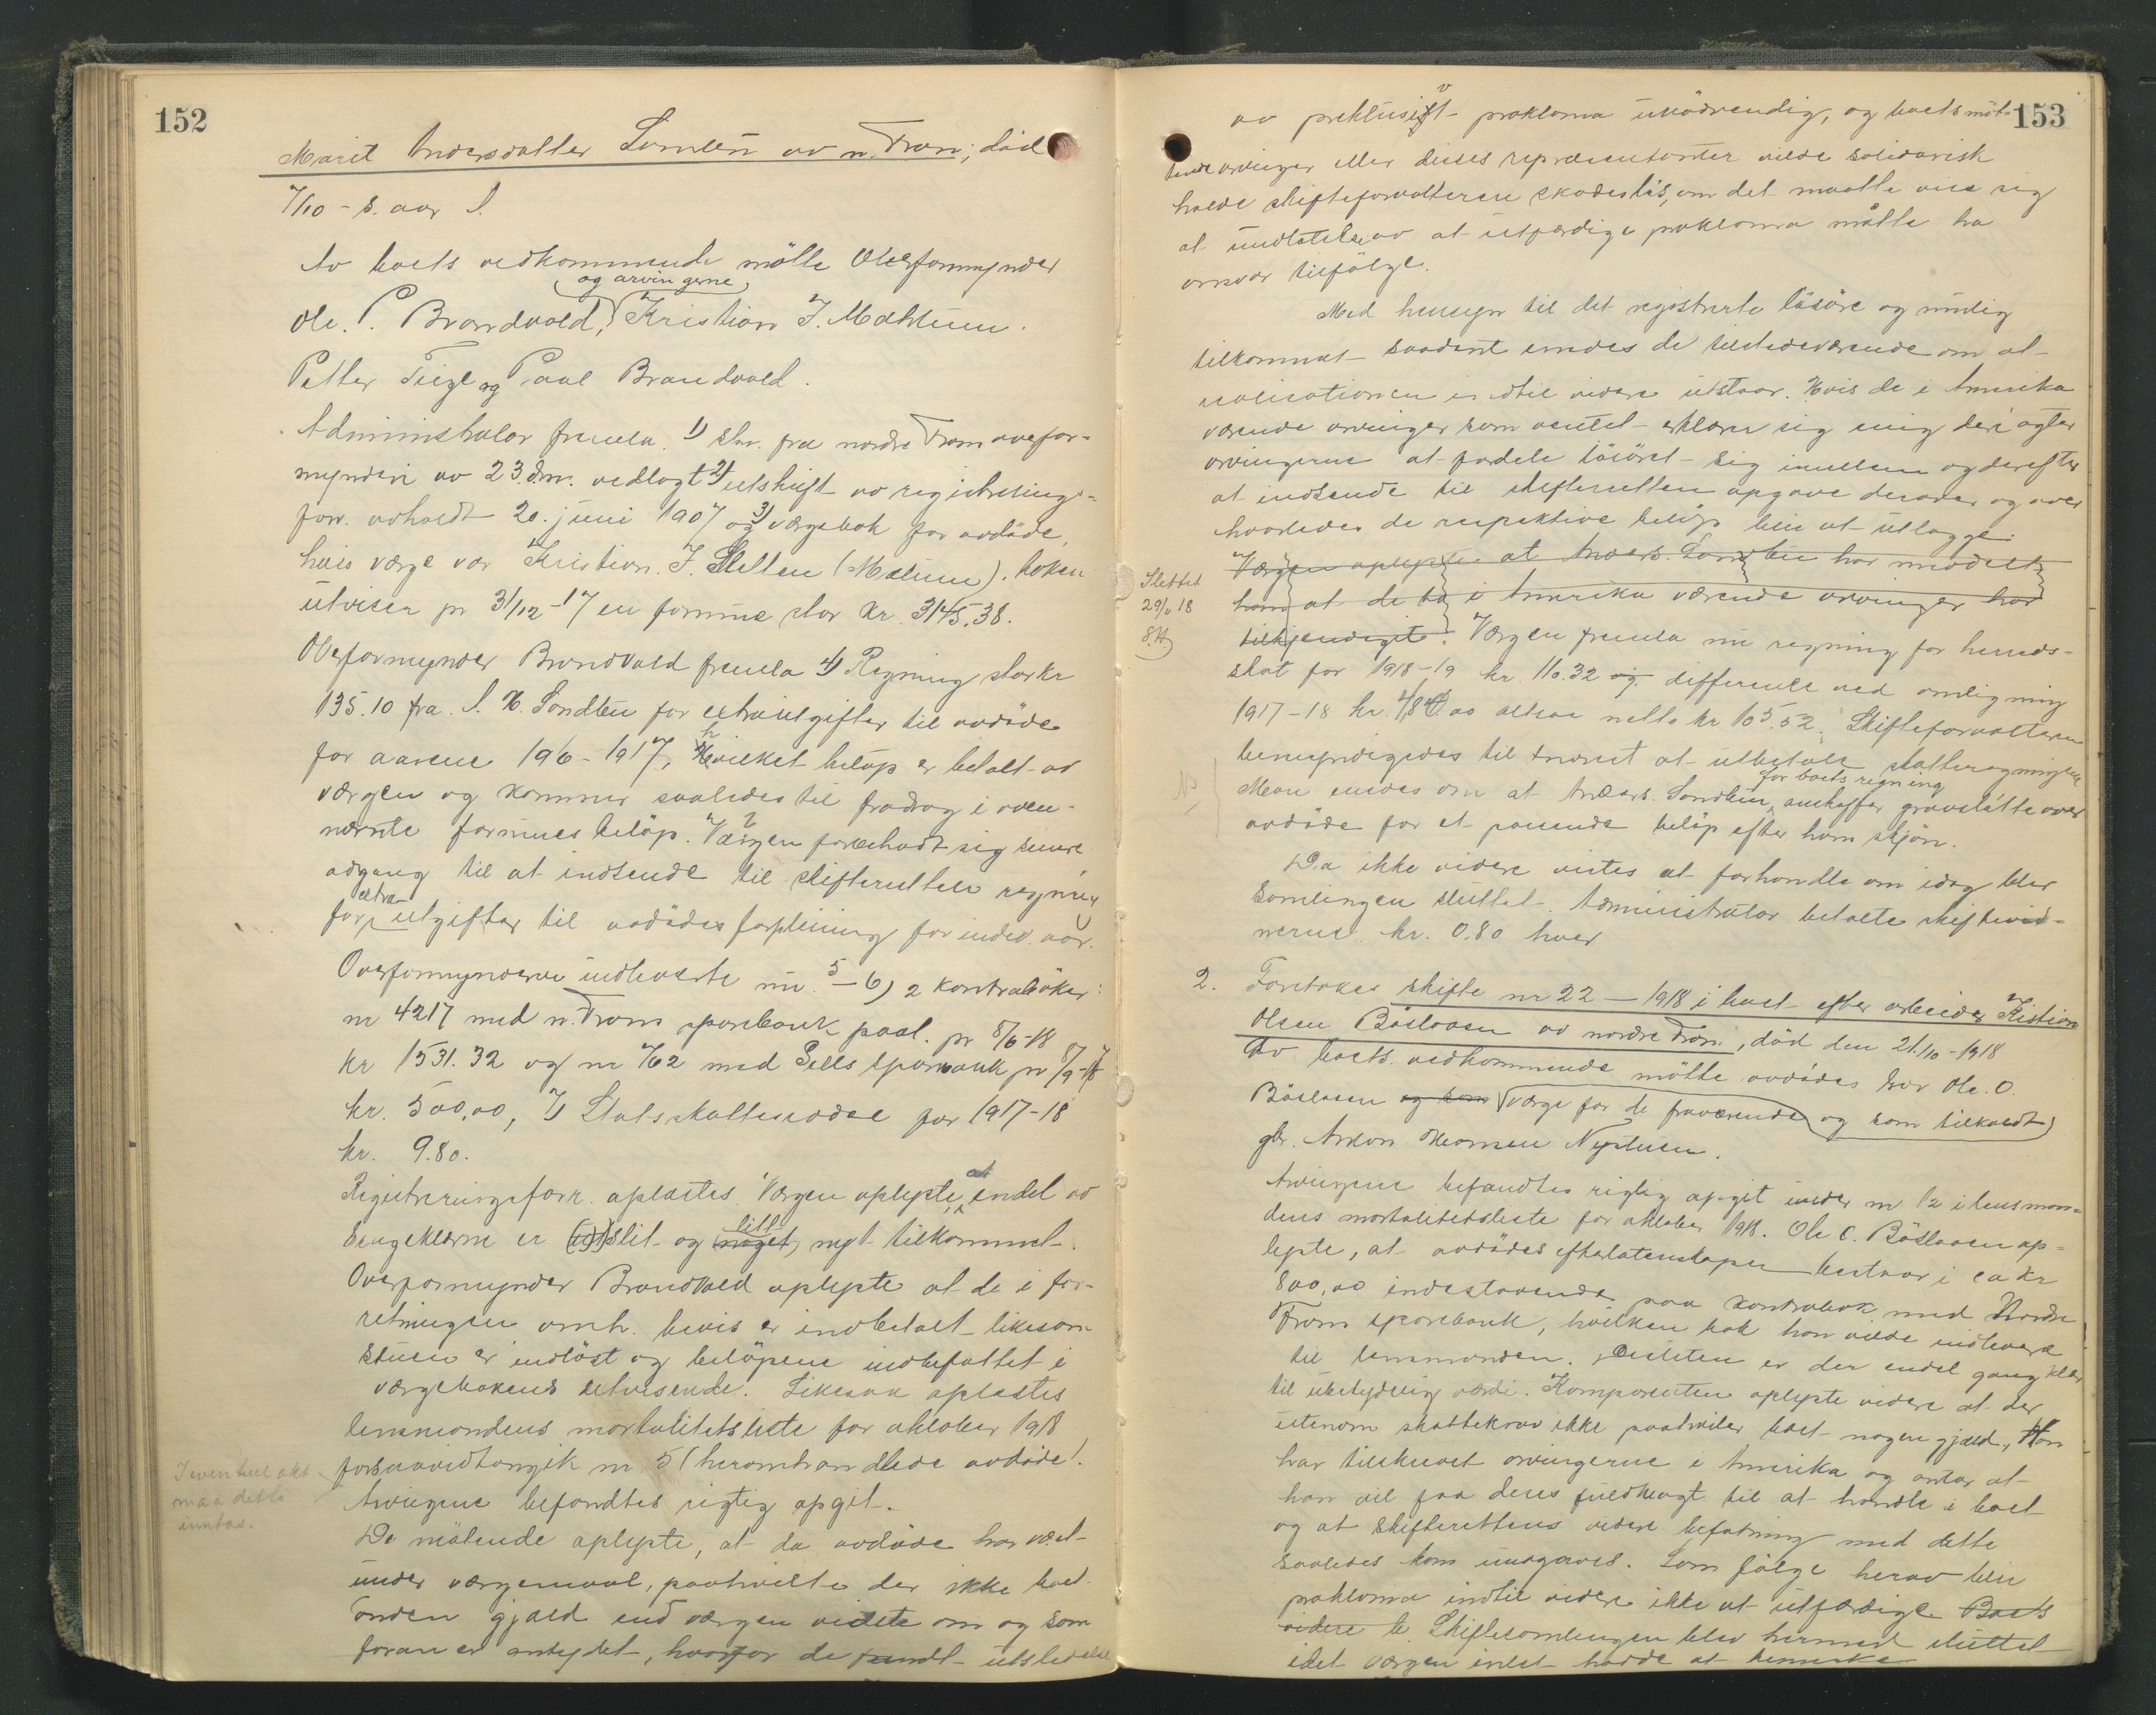 152
Marit Andersdatter Sømlien av n. Fron, død
7/10 - d. aar l.
Av boets vedkommende møtte Overformynder
og arvingerne
Ole. P. Brandvold, Kristian J. Mæhlum.
Petter Teige og Paal Brandvold.
Administrator fremla 1) skr. fra nordre Fron overfor-
mynderi av 23. dm. vedlagt 2) utskrift av registrerings-
forr. avholdt 20. juni 1907 og 3) vergebok for avdøde,
hvis verge var Kristian J. Sletten (Mælum). boken
utviser pr 31/12-17 en formue stor kr. 3145.38.
Overformynder Brandvold fremla 4) Regning stor kr
135.10 fra A. K. Sondlien for extrautgifter til avdøde
for aarene 196-1917, hvilket beløp er betalt av
værgen og kommer saaledes til fradrag i oven-
nævnte formuesbeløp. Værgen forbeholdt sig senere
adgang til at indsende til skifteretten regning
extra
for utgifter til avdødes forpleining for indev. aar.
Overformynderne indleverte nu 5-6) 2 kontrabøker:
nr 4217 med n. Frons sparebank paal. pr 8/6-18
kr 1531.32 og nr 762 med Sells sparebank pr 8/9-17
kr. 500,00, 7) Statsskatteseddel for 1917-18
kr. 9.80.
Registreringsforr. oplæstes. Værgen oplyste, at endel av
litt
sengeklærne er utslit og noget nyt tilkommet.
Overformynder Brandvold oplyste at de i for-
retningen omh. bevis er indbetalt likesom
stuen er indløst og beløpene indbefattet i
værgebokens utvisende. Likesaa oplæstes
lensmandens mortalitetsliste for oktober 1918
forsaavidt angik nr. 5 (heromhandlede avdøde).
Arvingene befandtes rigtig opgit.
De møtende oplyste, at da avdøde har været
under værgemaal, paahvilte der ikke boet
anden gjæld end værgen vidste om og som
foran er antydet, hvorfor de fandt utstedelse
I eventuel akt
maa dette
inntas.
153
av preklusivt proklama unødvendig, og boets møt-
tende arvinger eller disses repræsentanter vilde solidarisk
holde skifteforvalteren skadesløs, om det maatte vise sig
at undlatelse av at utfærdige proklama måtte ha
ansvar tilfølge.
Med hensyn til det registrerte løsøre og mulig
tilkommet saadant enedes de tilstedeværende om at
realisationen indtil videre utstaar. Hvis de i Amerika
værende arvinger som ventet erklærer sig enig deri agter
arvingerne at fordele løsøret sig imellem og derefter
at indsende til skifteretten opgave derover og over
hvorledes de respektive beløp blir at utlægge.
Værgen oplyste at Anders Sandlien har meddelt
ham at de to i Amerika værende arvinger har
tilkjendegit. Værgen fremla nu regning for herreds-
Slettet
29/11 18
skat for 1918-19 kr. 110.32 og difference ved omligning
1917-18 kr. 4,80 altsaa netto kr 105.52. Skifteforvalteren
bemyndigedes til snarest at utbetale skatteregningen
for boets regning
Man enedes om at Anders Sondlien anskaffer gravstøtte over
avdøde for et passende beløp efter hans skjøn.
NB
Da ikke videre vistes at forhandle om idag blev
samlingen sluttet. Administrator betalte skiftevid-
nerne kr. 0.80 hver
2. Foretokes skifte nr 22 - 1918 i boet efter arbeider Kristian
Olsen Båslaaen av nordre Fron, død den 21/10-1918
Av boets vedkommende møtte avdødes bror Ole O.
Båslaaen og som værge for de fraværende og som tilkaldt
gbr. Anton Thomsen Nyhusen.
Arvingene befandtes rigtig opgit under nr 12 i lensman-
dens mortalitetsliste for oktober 1918. Ole O. Båslaaen op-
lyste, at avdødes efterlatenskaper bestaar i ca kr
800,00 indestaaende paa kontrabok med Nordre
Frons sparebank, hvilken bok han vilde indlevere
til lensmanden. Desuten er der endel gangklær
til ubetydelig værdi. Komparenten oplyste videre at der
utenom skattekrav ikke paahviler boet nogen gjæld. Han
har tilskrevet arvingerne i Amerika og antar at
han vil faa deres fuldmagt til at handle i boet
og at skifterettens videre befatning med dette
saaledes kan undgaaes. Som følge herav blir
proklama indtil videre ikke at utfærdige. Boets
videre b. Skiftesamlingen blev hermed sluttet
idet værgen intet hadde at bemerke